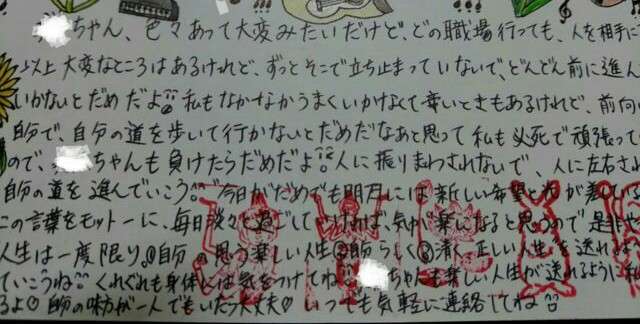 ちゃん、色々あって大変みたいだけど、どの職場行っても、人を相手に
以上大変なところはあるけれど、ずっとそこで立ち止まっていないで、どんどん前に進ん
いかないとだめだよ 私もなかなかうまくいかなくて辛いときもあるけれど、前向
自分で、自分の道を歩いて行かないとだめだなあと思って私も必死で頑張って
ので、ちゃんも負けたらだめだよ 人に振りまわされないで、人に左右され
自分の道を進んでいこう 今日がだめでも明日には新しい希望と
この言葉をモットーに、毎日淡々と過ごしていければ、気が楽になると思うので是非
人生は一度限り。自分の思う楽しい人生 自分らしく 清く正しい人生を送れる
ていこうね くれぐれも身体には気をつけてね ちゃんも楽しい人生が送れるように
るよ 自分の味方が一人でもいたら大丈夫 いつでも気軽に連絡してね